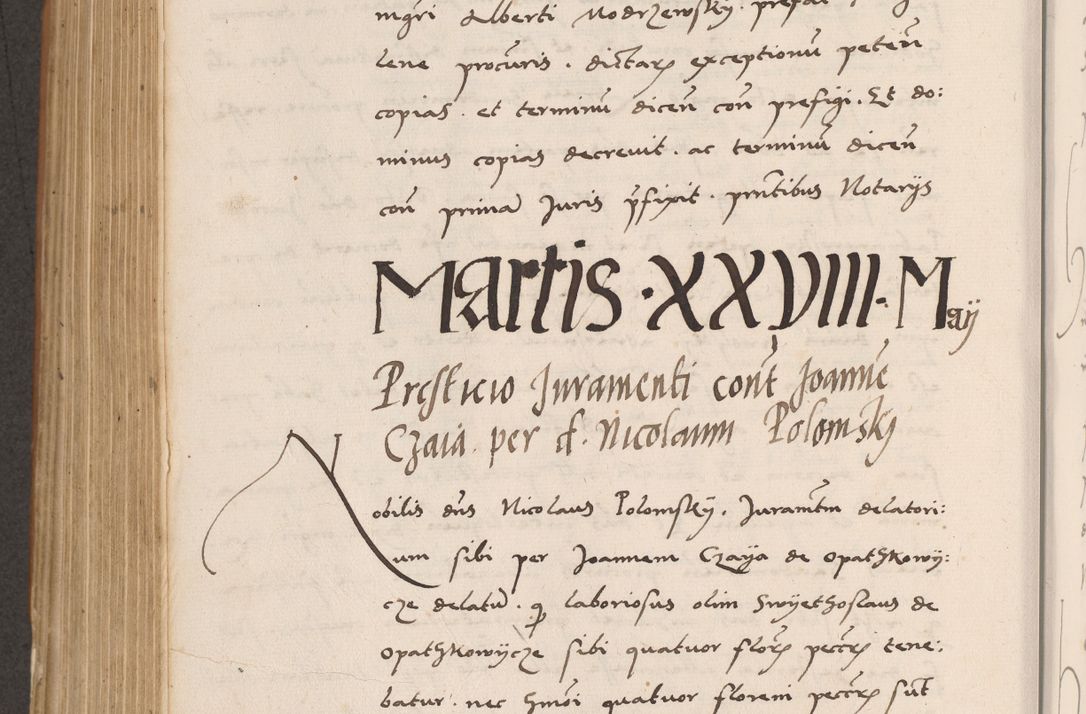 mgri Alberti Modrzewsky. prefat
lene procuris. dictarꝝ exceptionū peteñ
copias. et terminū diceñ coñ prefigi. Et do:
minus copias decrevit. ac terminū diceñ
coñ prima Juris p̄fixit. pñtibus Notarijs
Martis ·XXVIII· Maij
Presticio Juramenti cont̄ Joannē
Czaia per d. Nicolaum Polomsky
Nobilis dñs Nicolaus Polomskÿ. Juramtm delatori:
um sibi per Joannem Czaÿa de Opathkowÿ:
cze delatū. ꝙ laboriosus olim Swÿethoslaus de
Opathkowÿcze sibi quatuor florꝭ peccꝭ tene:
batur. nec hmōi quatuor floreni peccꝭ sūt